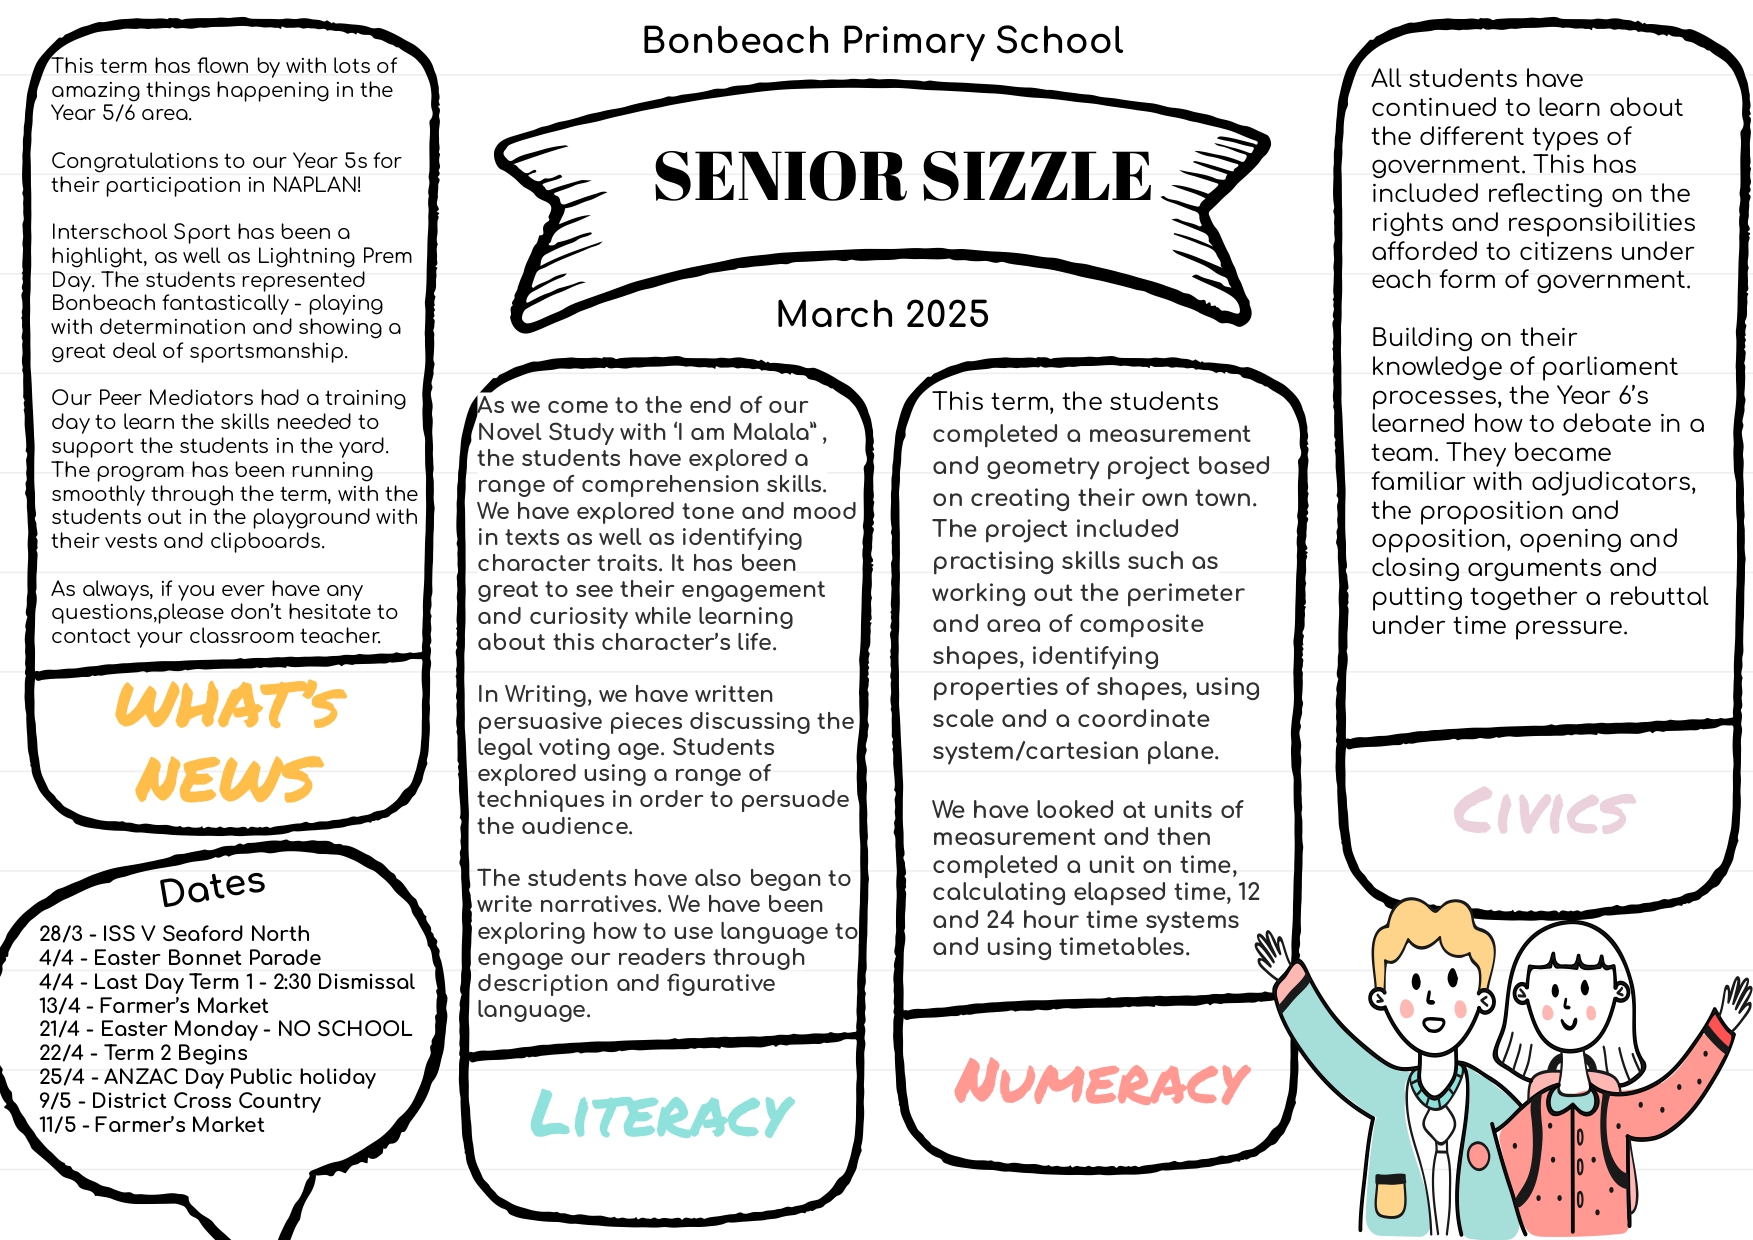 Bonbeach Primary School
SENIOR SIZZLE
March 2025
This term has flown by with lots of
amazing things happening in the
Year 5/6 area.
Congratulations to our Year 5s for
their participation in NAPLAN!
Interschool Sport has been a
highlight, as well as Lightning Prem
Day. The students represented
Bonbeach fantastically - playing
with determination and showing a
great deal of sportsmanship.
Our Peer Mediators had a training
day to learn the skills needed to
support the students in the yard.
The program has been running
smoothly through the term, with the
students out in the playground with
their vests and clipboards.
As always, if you ever have any
questions,please don't hesitate to
contact your classroom teacher.
WHAT's
NEWS
Dates
28/3 - ISS V Seaford North
4/4 - Easter Bonnet Parade
4/4 - Last Day Term 1 - 2:30 Dismissal
13/4 - Farmer's Market
21/4 - Easter Monday - NO SCHOOL
22/4 - Term 2 Begins
25/4 - ANZAC Day Public holiday
9/5 - District Cross Country
11/5 - Farmer's Market
As we come to the end of our
Novel Study with 'I am Malala" ,
the students have explored a
range of comprehension skills.
We have explored tone and mood
in texts as well as identifying
character traits. It has been
great to see their engagement
and curiosity while learning
about this character's life.
In Writing, we have written
persuasive pieces discussing the
legal voting age. Students
explored using a range of
techniques in order to persuade
the audience.
The students have also began to
write narratives. We have been
exploring how to use language to
engage our readers through
description and figurative
language.
LITERACY
This term, the students
completed a measurement
and geometry project based
on creating their own town.
The project included
practising skills such as
working out the perimeter
and area of composite
shapes, identifying
properties of shapes, using
scale and a coordinate
system/cartesian plane.
We have looked at units of
measurement and then
completed a unit on time,
calculating elapsed time, 12
and 24 hour time systems
and using timetables.
NUMERACY
All students have
continued to learn about
the different types of
government. This has
included reflecting on the
rights and responsibilities
afforded to citizens under
each form of government.
Building on their
knowledge of parliament
processes, the Year 6's
learned how to debate in a
team. They became
familiar with adjudicators,
the proposition and
opposition, opening and
closing arguments and
putting together a rebuttal
under time pressure.
CIVICS